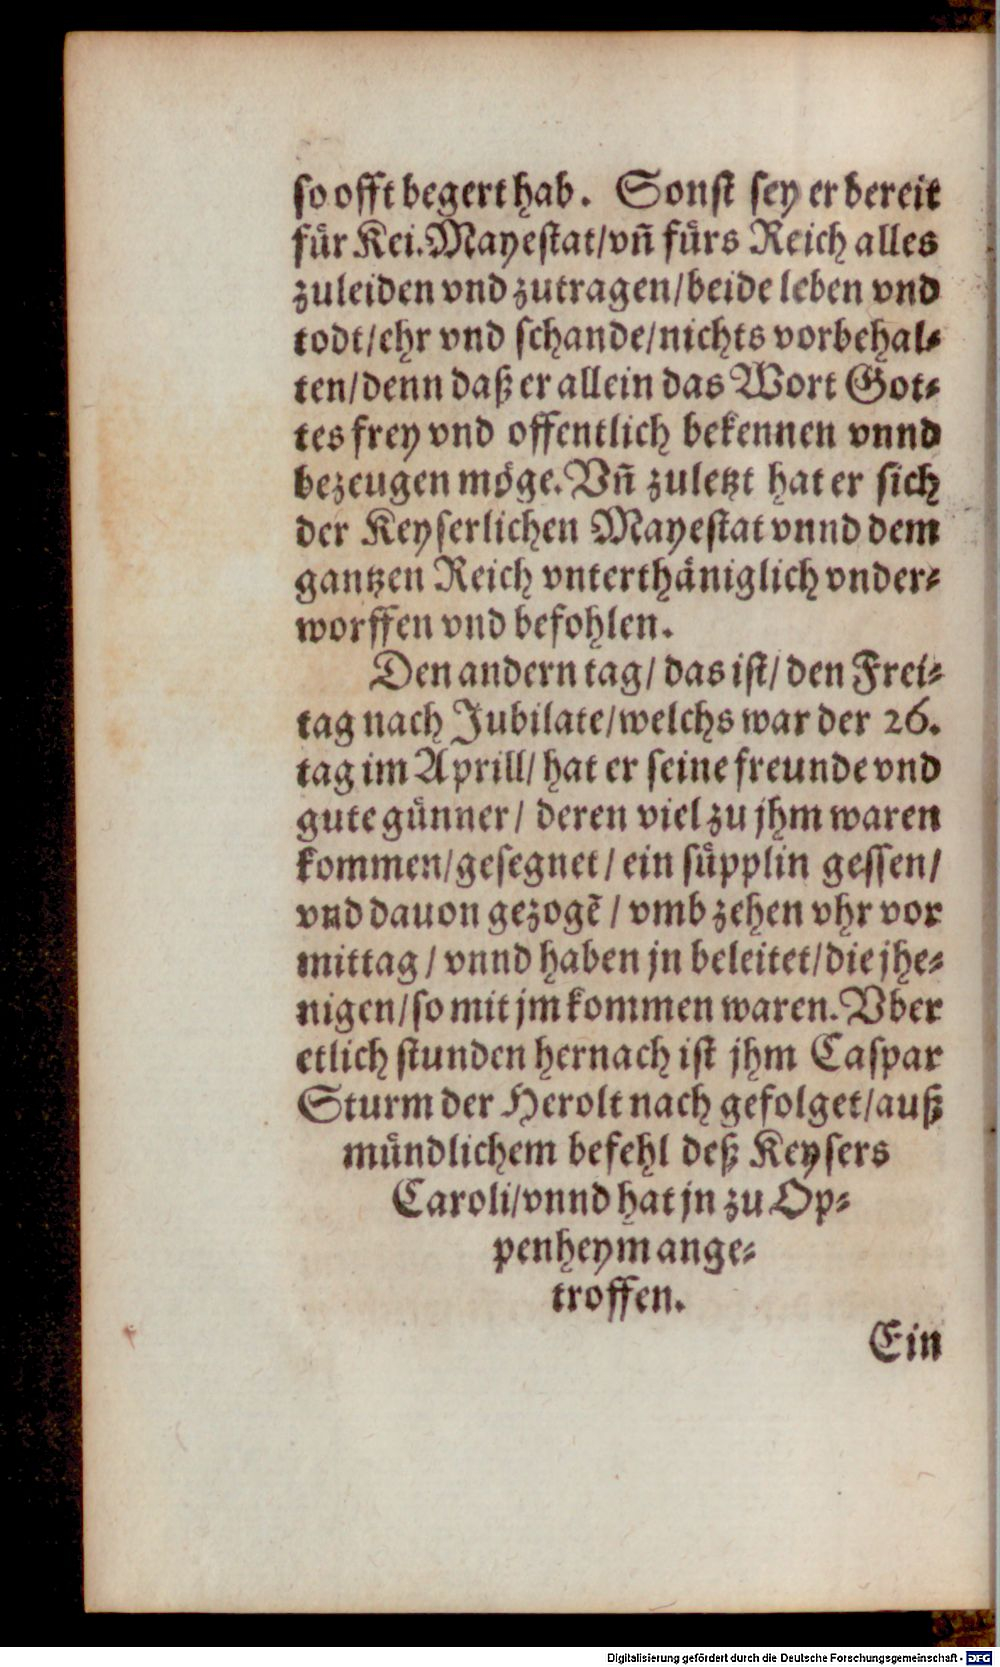 so offt begert hab. Sonst sey er bereit
für Kei. Mayestat/ vñ fürs Reich alles
zuleiden vnd zutragen/ beide leben vnd
todt/ ehr vnd schande/ nichts vorbehal-
ten/ denn daß er allein das Wort Got-
tes frey vnd offentlich bekennen vnnd
bezeugen möge. Vñ zuletzt hat er sich
der Keyserlichen Mayestat vnnd dem
gantzen Reich vnterthäniglich vnder-
worffen vnd befohlen.
Den andern tag/ das ist/ den Frei-
tag nach Jubilate/ welchs war der 26.
tag im Aprill/ hat er seine freunde vnd
gute günner/ deren viel zu jhm waren
kommen/ gesegnet/ ein süpplin gessen/
vnd dauon gezogẽ/ vmb zehen vhr vor
mittag/ vnnd haben jn beleitet/ die jhe-
nigen/ so mit jm kommen waren. Vber
etlich stunden hernach ist jhm Caspar
Sturm der Herolt nach gefolget/ auß
mündlichem befehl deß Keysers
Caroli/ vnnd hat jn zu Op-
penheym ange-
troffen.
Ein
Digitalisierung gefördert durch die Deutsche Forschungsgemeinschaft - DFG